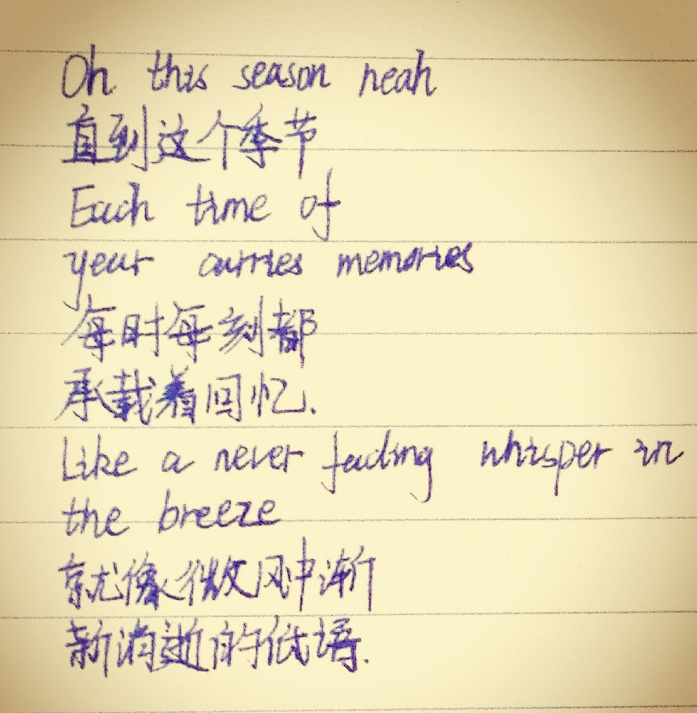 Oh this season neah
直到这个季节
Each time of
year carries memories
每时每刻都
承载着回忆.
Like a never fading whisper in
the breeze
就像微风中渐
渐消逝的低语.